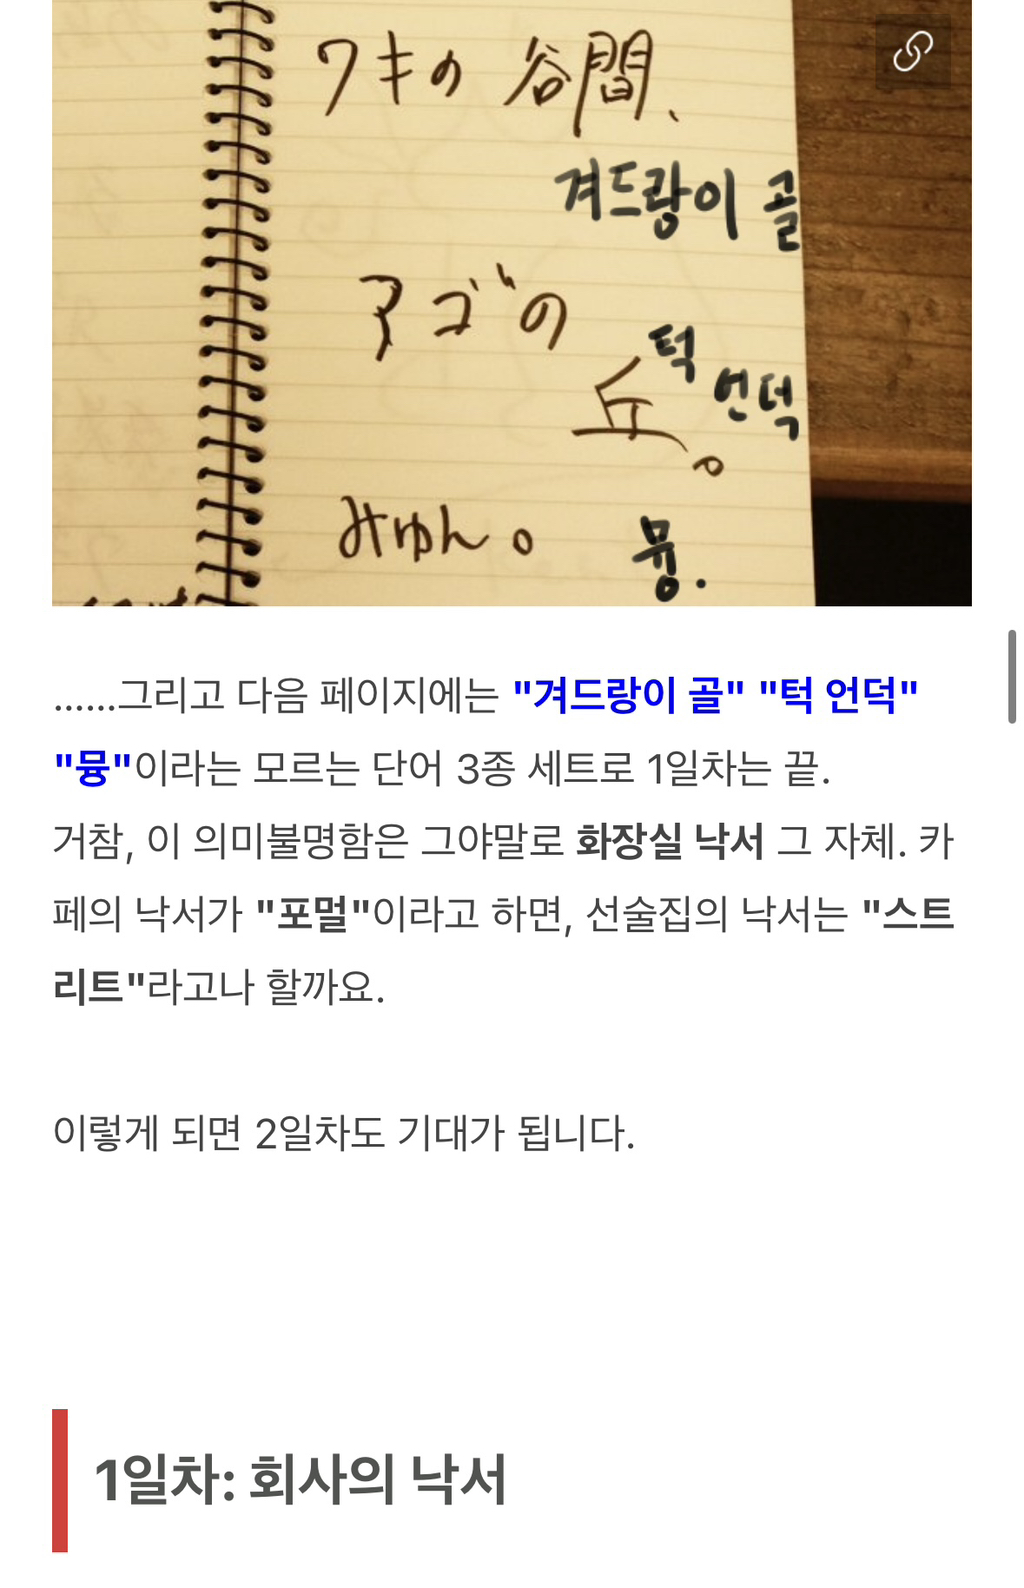 ワキの谷間、
겨드랑이 골
アゴの
턱
언덕
丘。
みゅん。
뮹.
……그리고 다음 페이지에는 "겨드랑이 골" "턱 언덕"
"뮹"이라는 모르는 단어 3종 세트로 1일차는 끝.
거참, 이 의미불명함은 그야말로 화장실 낙서 그 자체. 카
페의 낙서가 "포멀"이라고 하면, 선술집의 낙서는 "스트
리트"라고나 할까요.
이렇게 되면 2일차도 기대가 됩니다.
1일차: 회사의 낙서